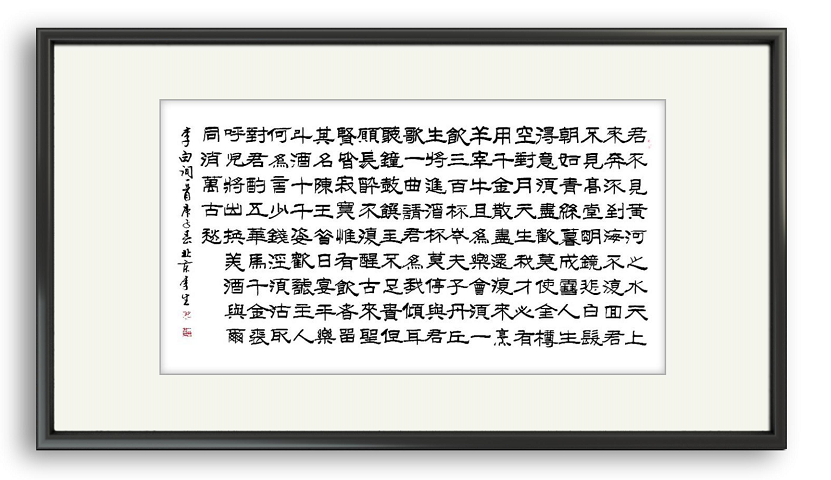 君不見黃河之水天上
來奔流到海不復回君
不見高堂明鏡悲白髮
朝如青絲暮成雪人生
得意須盡歡莫使金樽
空對月天生我才必有
用千金散盡還復來烹
羊宰牛且為樂會須一
飲三百杯岑夫子丹丘
生將進酒杯莫停與君
歌一曲請君為我傾耳
聽鐘鼓饌玉不足貴但
願長醉不復醒古來聖
賢皆寂寞惟有飲者留
其名陳王昔日宴平樂
斗酒十千恣歡謔主人
何為言少錢徑須沽取
對君酌五華馬千金裘
呼兒將出換美酒與爾
同消萬古愁
李白詞一首庚子春北京李生